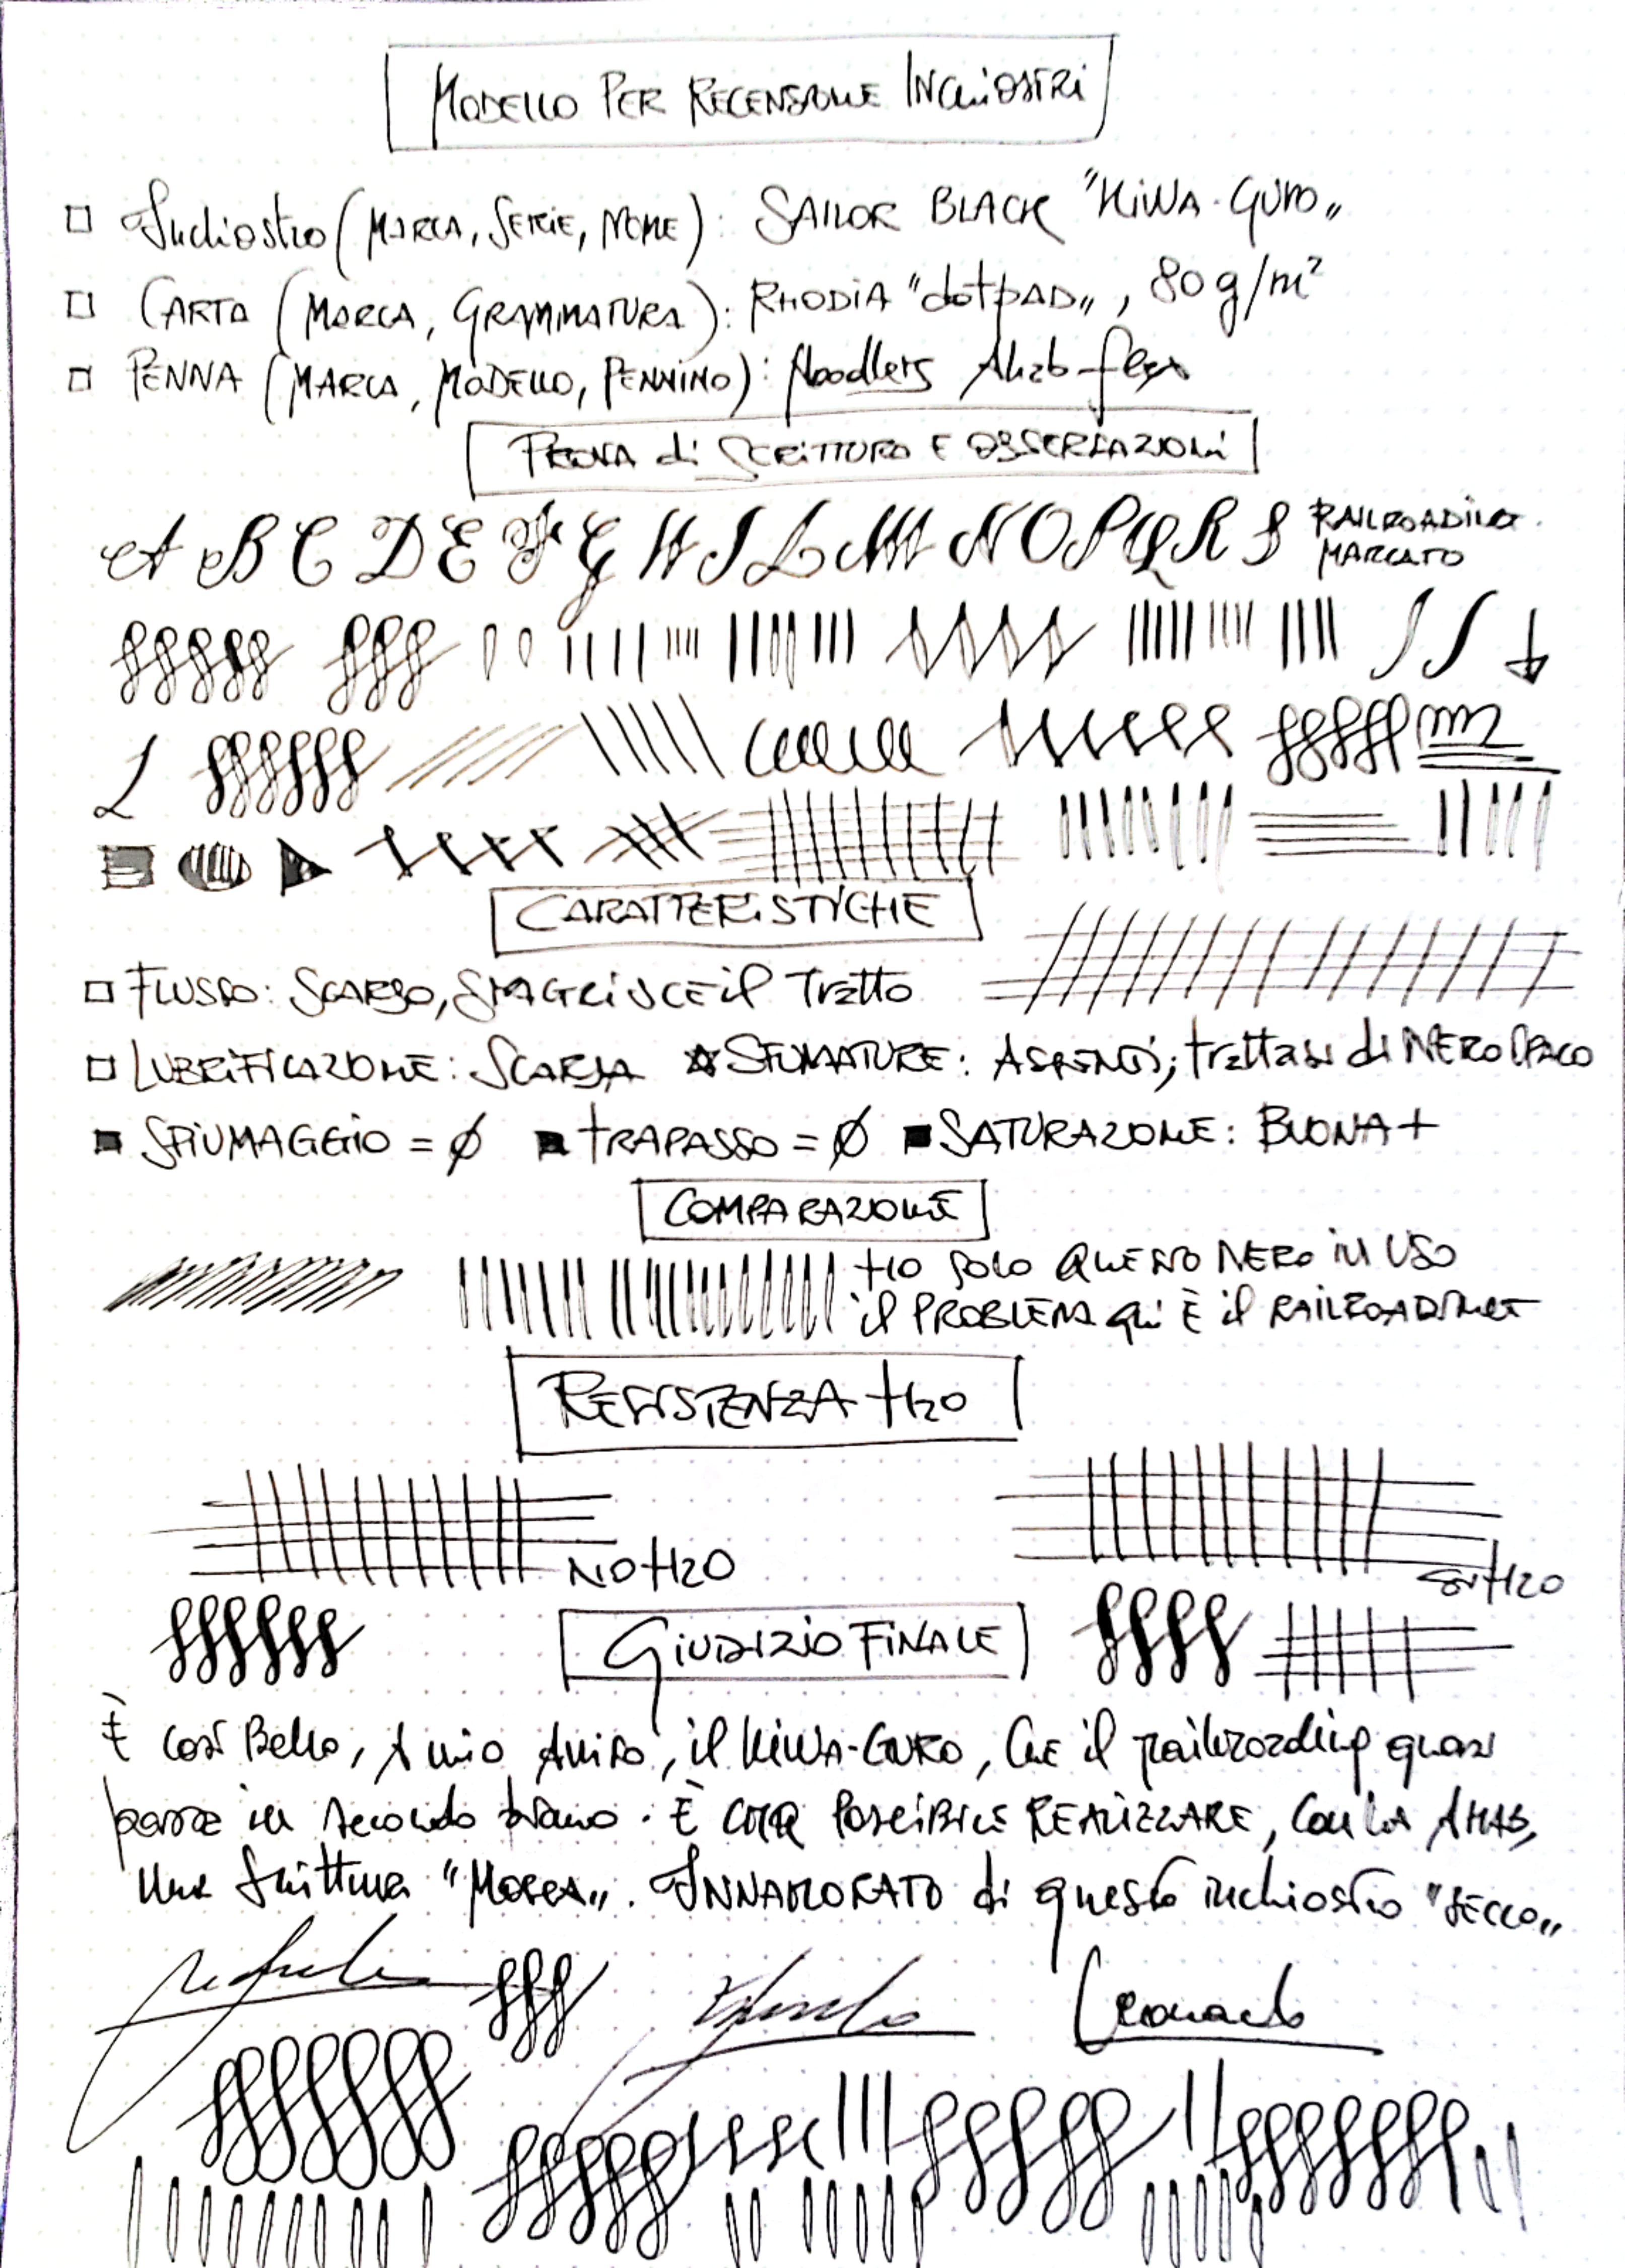 MODELLO PER RECENSIONE INCHIOSTRI
Inchiostro (MARCA, SERIE, NOME): SAILOR BLACK "KIWA-GURO„
CARTA (MARCA, GRAMMATURA): RHODIA "dotPAD„, 80 g/m²
PENNA (MARCA, MODELLO, PENNINO): Noodlers Ahab flex
PROVA di SCRITTURA E OSSERVAZIONI
A B C D E F G H I L M N O P Q R S RAILROADING
MARCATO
CARATTERISTICHE
FLUSSO: SCARSO, SMAGRISCE il Tratto
LUBRIFICAZIONE: SCARSA SFUMATURE: ASSENTI; trattasi di NERO OPACO
SPIUMAGGIO = Ø TRAPASSO = Ø SATURAZIONE: BUONA+
COMPARAZIONE
HO SOLO QUESTO NERO IN USO
il PROBLEMA qui È il RAILROADING
RESISTENZA H2O
NO H2O
SI H2O
GIUDIZIO FINALE
È così Bello, A mio AVVISO, il KIWA-GURO, CHE il railroading quasi
passa in secondo piano. È POSSIBILE REALIZZARE, con la AHAB,
una scrittura "MOSSA„. INNAMORATO di questo inchiostro "SECCO„
Leonardo